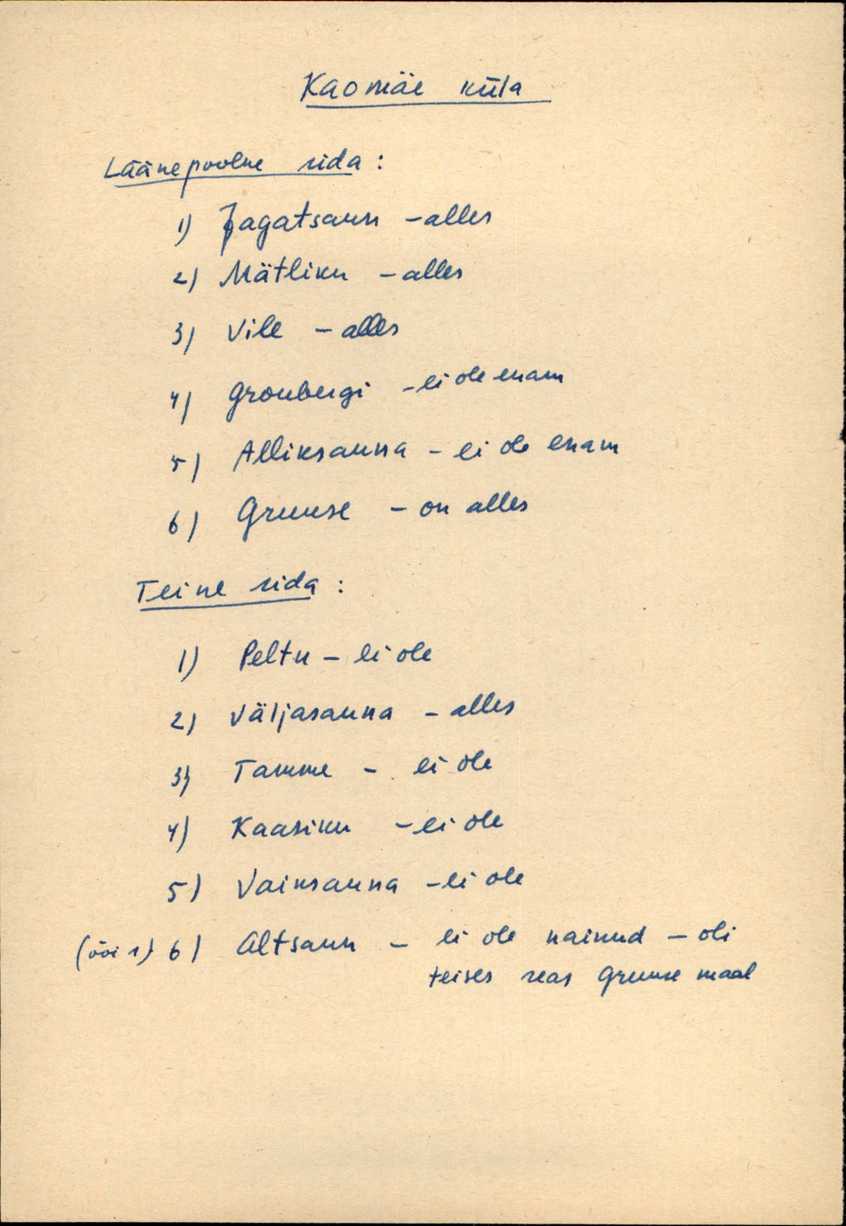 Kaomäe küla
Läänepoolne rida:
1) Jagatsaun - alles
2) Mätliku - alles
3) Vile - alles
4) Gronbergi - ei ole enam
5) Alliksauna - ei ole enam
6) Gruuse - on alles
Teine rida:
1) Peltu - ei ole
2) Väljasauna - alles
3) Tamme - ei ole
4) Kaasiku - ei ole
5) Vainsauna - ei ole
6) Altsaun - ei ole näinud - oli
teises reas Gruuse maal